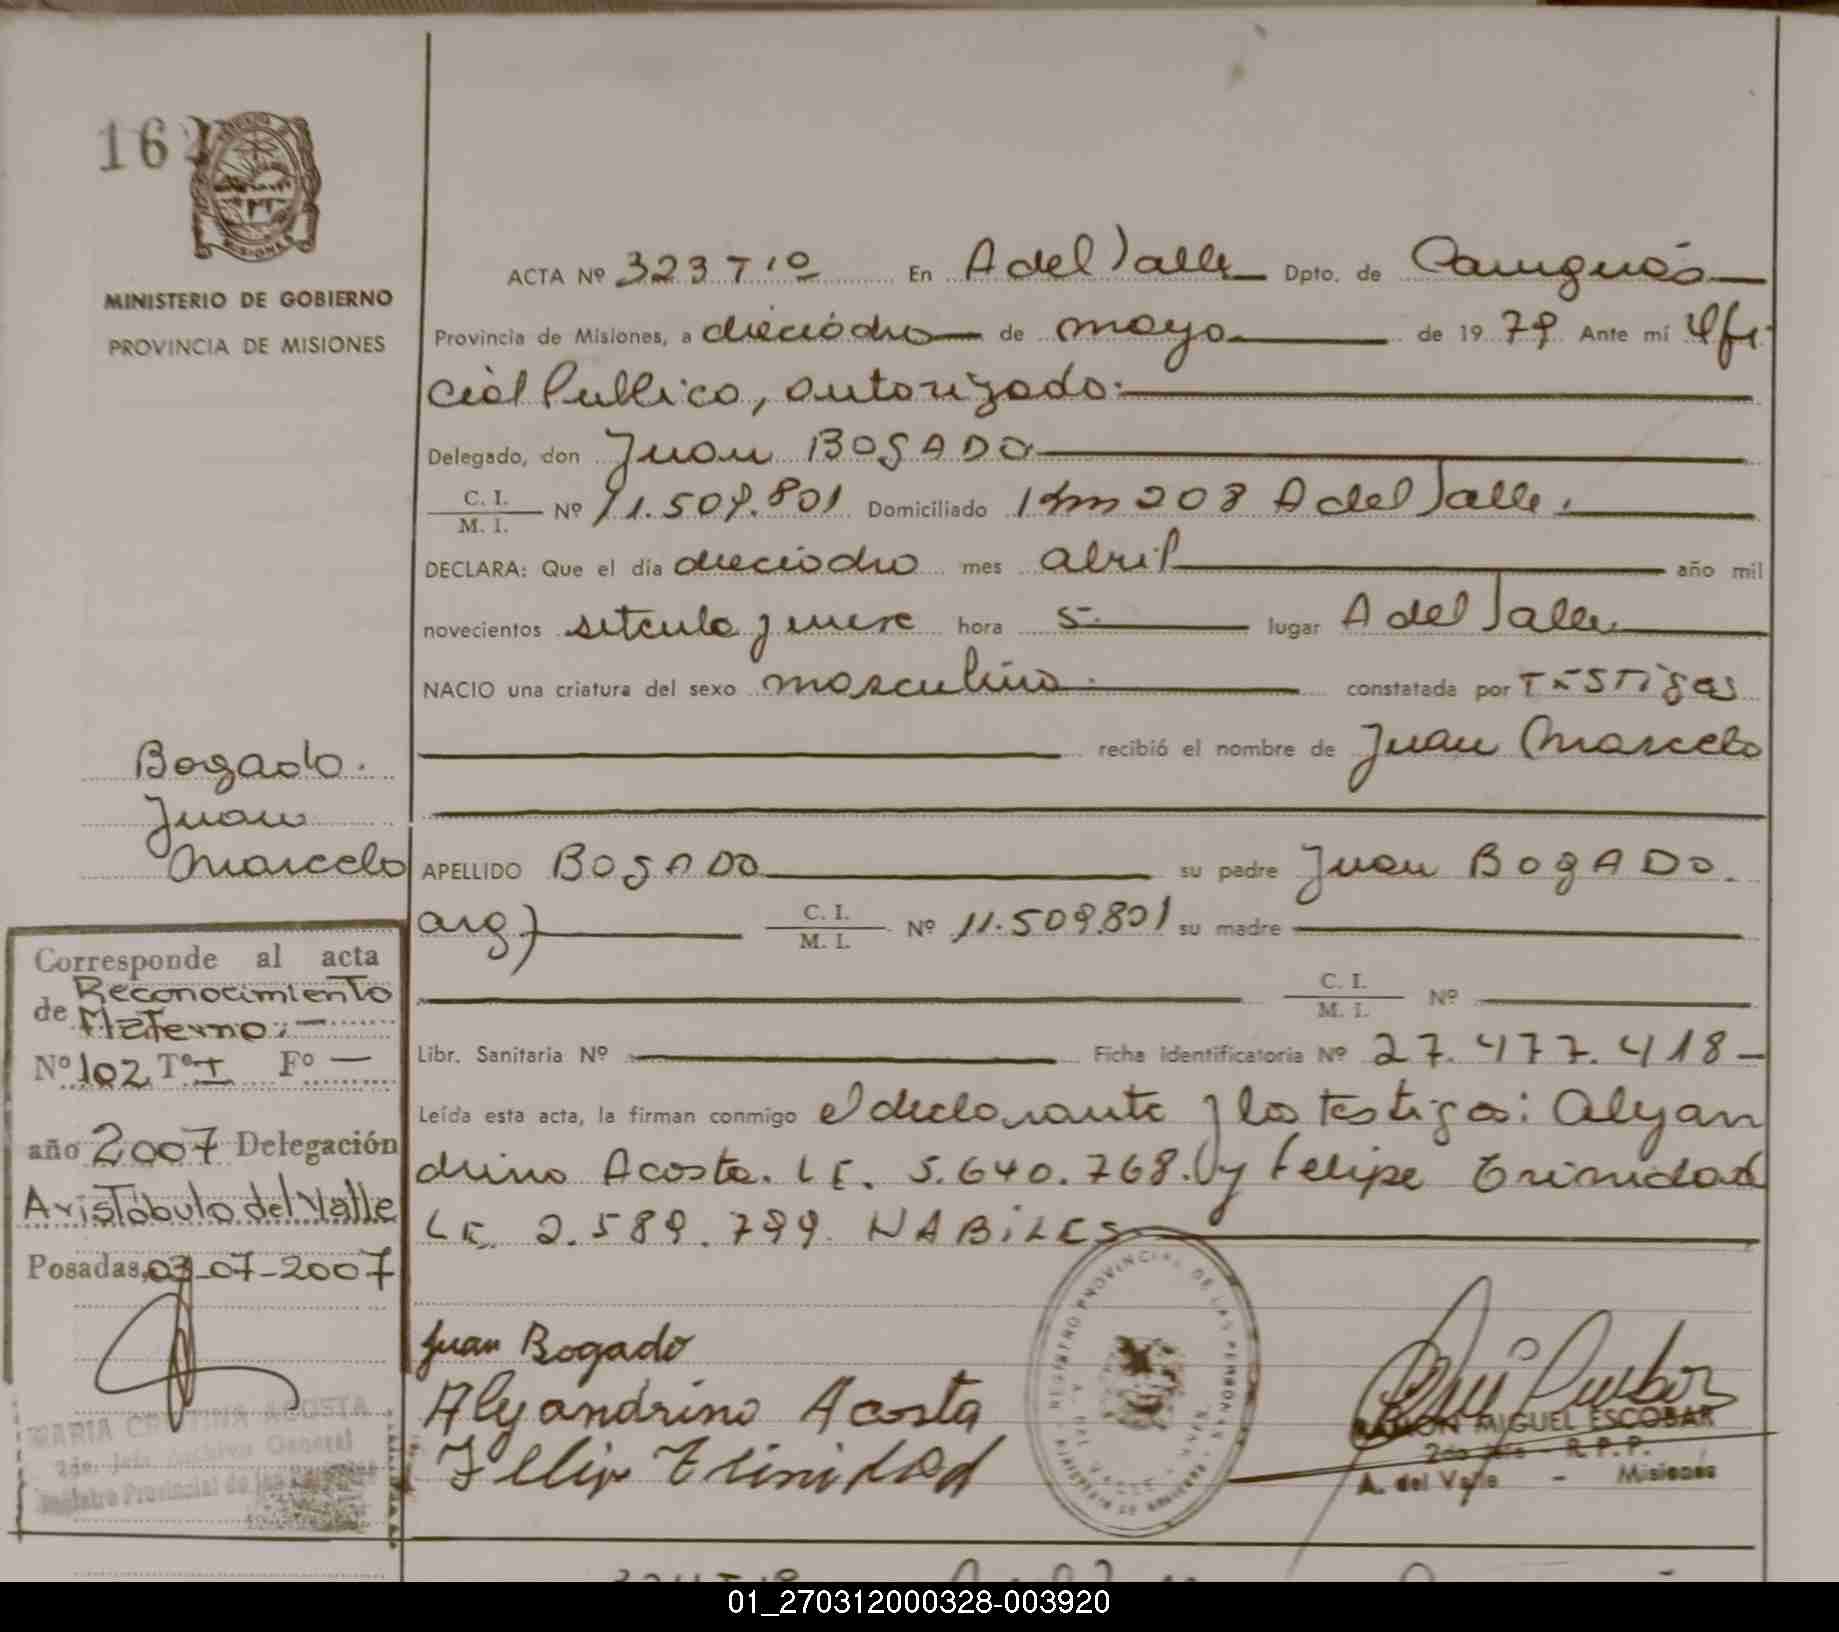 162
MINISTERIO DE GOBIERNO
PROVINCIA DE MISIONES
ACTA Nº 323 T 1º En A del Valle Dpto. de Cainguás
Provincia de Misiones, a dieciocho de mayo de 1979 Ante mí Ofi
cial Publico, autorizado:
Delegado, don Juan BOGADO
C. I.
M. I. Nº 11.509.801 Domiciliado Km 208 A del Valle.
DECLARA: Que el día dieciocho mes abril año mil
novecientos setenta y nueve hora 5 lugar A del Valle
NACIO una criatura del sexo masculino constatada por TESTigos
recibió el nombre de Juan Marcelo
Bogado.
Juan
Marcelo
APELLIDO BOGADO su padre Juan BOGADO.
arg) C. I.
M. I. Nº 11.509.801 su madre
C. I.
M. I. Nº
Libr. Sanitaria Nº Ficha identificatoria Nº 27.477.418
Leída esta acta, la firman conmigo el declarante y los testigos: Alejan
drino Acosta. L E. 5.640.768. y Felipe Trinidad
LE. 2.589.799. HABiLES
Corresponde al acta
de Reconocimiento
Materno:
Nº 102 Tº I Fº
año 2007 Delegación
Aristóbulo del Valle
Posadas, 03-07-2007
MARIA CRISTINA ACOSTA
2da. Jefa Archivo General
Registro Provincial de las Personas
Juan Bogado
Alejandrino Acosta
Felip Trinidad
REGISTRO PROVINCIAL DE LAS PERSONAS
A. DEL VALLE
MINISTERIO DE GOBIERNO
RAMON MIGUEL ESCOBAR
2do Jefe - R. P. P.
A. del Valle - Misiones
01_270312000328-003920